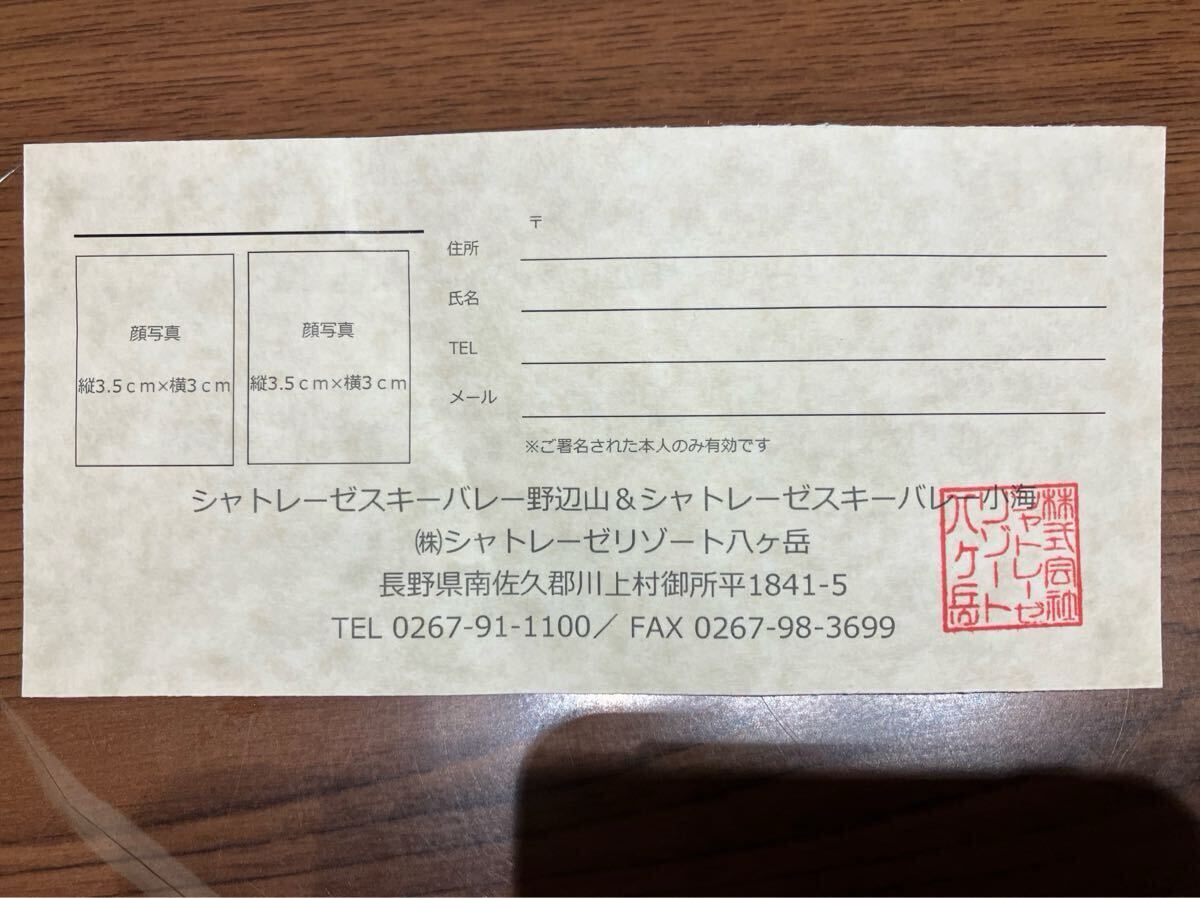 顔写真
縦3.5ｃｍ×横3ｃｍ
顔写真
縦3.5ｃｍ×横3ｃｍ
〒
住所
氏名
TEL
メール
※ご署名された本人のみ有効です
シャトレーゼスキーバレー野辺山＆シャトレーゼスキーバレー小海
㈱シャトレーゼリゾート八ヶ岳
長野県南佐久郡川上村御所平1841-5
TEL 0267-91-1100／ FAX 0267-98-3699
株式会社
シャトレーゼ
リゾート
八ヶ岳